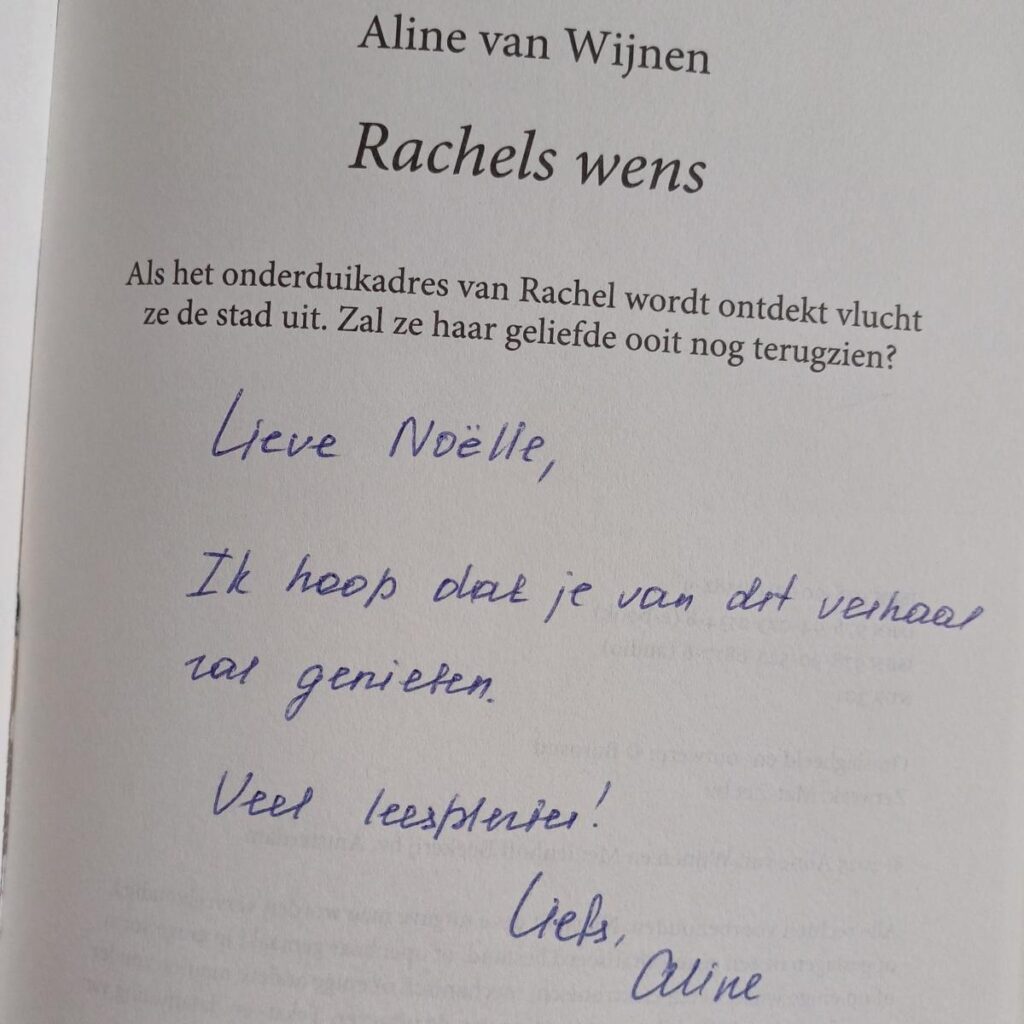 Aline van Wijnen
Rachels wens
Als het onderduikadres van Rachel wordt ontdekt vlucht
ze de stad uit. Zal ze haar geliefde ooit nog terugzien?
Lieve Noëlle,
Ik hoop dat je van dit verhaal
zal genieten.
Veel leesplezier!
Liefs,
Aline